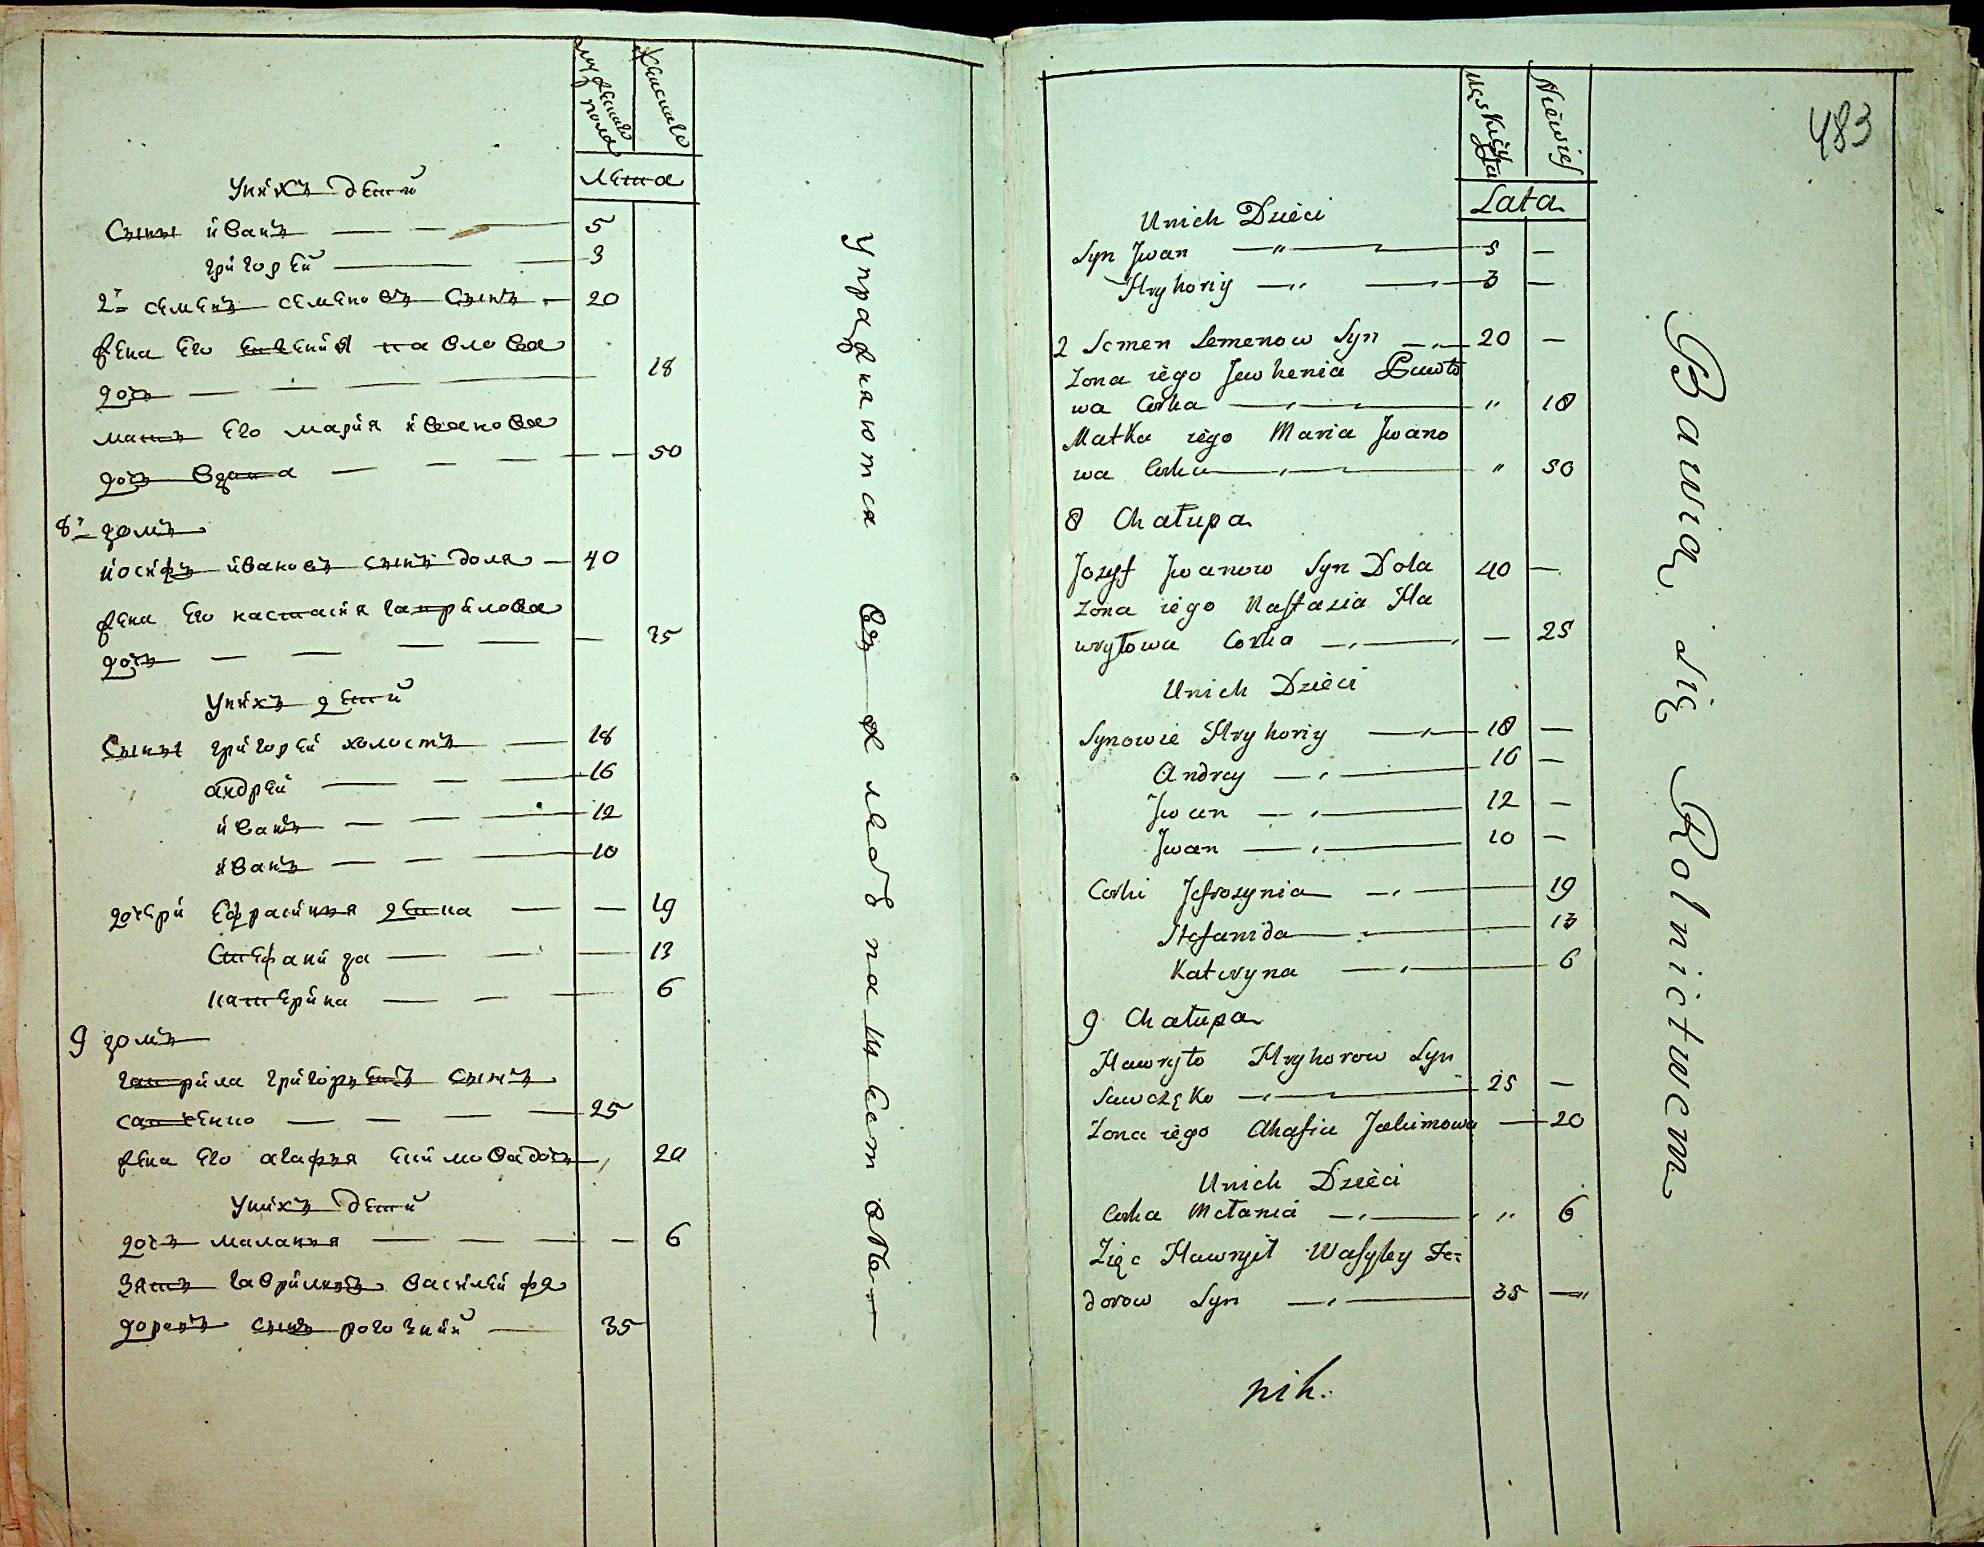 мужеска пола
женска
лета
У них детй
Сыны йван — 5
григорей — 3
2й семен семенов сын — 20
жена его евгения павлова
доч — 18
мать его мария йванова
доч вдова — 50
8й дом
йосиф йванов сын доля — 40
жена его настасия гаврилова
доч — 25
У них детй
Сыны григорей холост — 18
андрей — 16
йван — 12
йван — 10
дочери Ефрасиния девка — 19
Стефанида — 13
катерина — 6
9 дом
гаврила григорьев сын
савченко — 25
жена его агафия екимова доч — 20
У них детй
доч малания — 6
зять гаврилин василий фе
доров сын — 35
Упражнаютса в хлебопашестве
483
Męskiey
Niewiej
Lata
Unich Dzieci
Syn Jwan — 5 —
Hryhoriy — 3 —
2 Semen Semenow Syn — 20 —
Zona iego Jewhenia Pawło
wa Corka — " 18
Matka iego Maria Jwano
wa Corka — " 50
8 Chałupa
Jozyf Jwanow Syn Dola 40 —
Zona iego Nastazia Ha
wryłowa Corka — — 25
Unich Dzieci
Synowie Hryhoriy — 18 —
Andrey — 16 —
Jwan — 12 —
Jwan — 10 —
Corki Jefrozynia — 19
Stefanida — 13
Kateryna — 6
9 Chałupa
Hawryło Hryhorow Syn
Sawczęko — 25 —
Zona iego Ahafia Jakimowa — 20
Unich Dzieci
Corka Mełania — " 6
Zięc Hawryił Wasyley Fe=
dorow Syn — 35 —"
nik.
Bawią się Rolnictwem